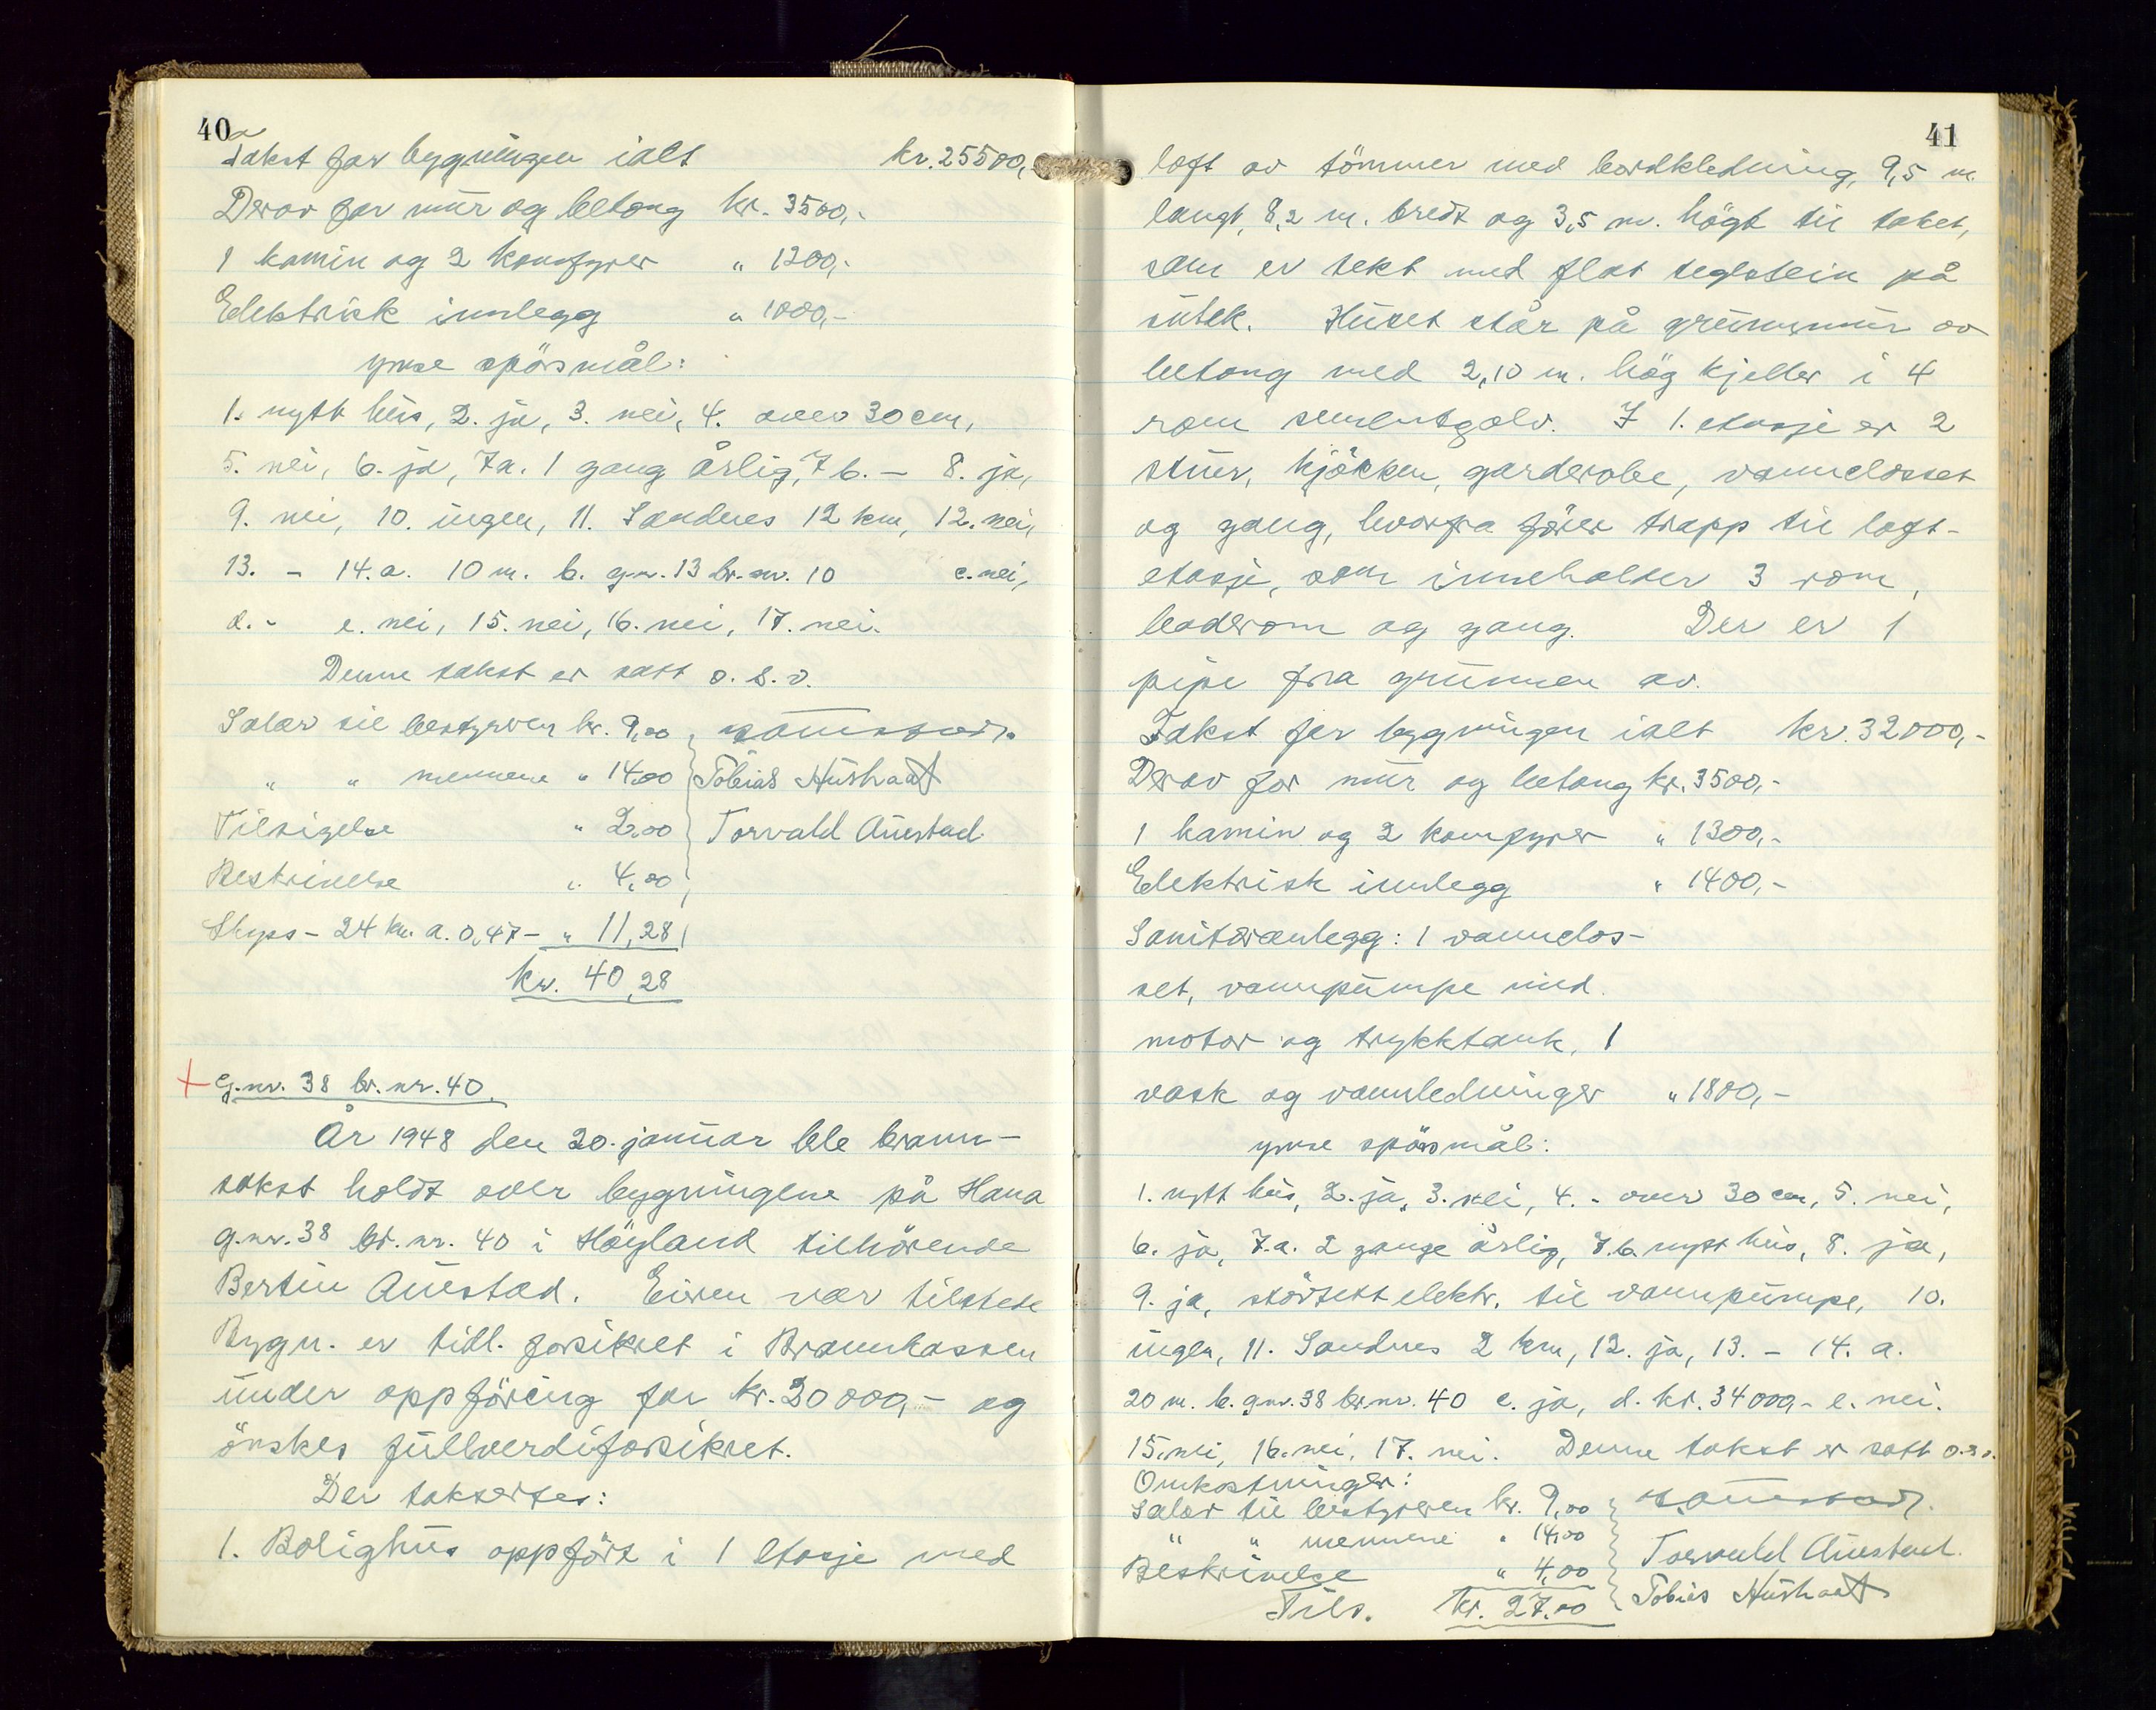 40
Takst for bygningen ialt kr. 25500,-
Derav for mur og betong kr. 3500,-
1 kamin og 2 komfyrer " 1200,-
Elektrisk innlegg " 1000,-
ymse spörsmål:
1. nytt hus, 2. ja, 3. nei, 4. over 30 cm,
5. nei, 6. ja, 7a. 1 gang årlig, 7 b. - 8. ja,
9. nei, 10. ingen, 11. Sandnes 12 km, 12. nei,
13. - 14. a. 10 m. b. g.nr. 13 br.nr. 10 c. nei,
d. - e. nei, 15. nei, 16. nei, 17. nei.
Denne takst er satt o. s. v.
Salær til bestyreren kr. 9,00
" " mennene " 14,00 Tobias Aushaat
Tilsigelse " 2,00 Torvald Auestad
Beskrivelse " 4,00
Skyss - 24 km. a. 0,47 - " 11,28
kr. 40,28
+ G.nr. 38 br. nr. 40.
År 1948 den 20. januar ble brann-
takst holdt over bygningene på Hana
g.nr. 38 br. nr. 40 i Höyland tilhörende
Bertin Auestad. Eieren var tilstede
Bygn. er tidl. forsikret i Brannkassen
under oppföring for kr. 20000,- og
önskes fullverdiforsikret.
Der takseres:
1. Bolighus oppfört i 1 etasje med
41
loft av tömmer med bordkledning, 9,5 m.
langt, 8,2 m. bredt og 3,5 m. högt til taket,
som er tekt med flat teglstein på
sutek. Huset står på grunnmur av
betong med 2,10 m. hög kjeller i 4
rom sementgolv. I 1. etasje er 2
stuer, kjökken, garderobe, vannclosset
og gang, hvorfra förer trapp til loft-
etasje, som inneholder 3 rom,
baderom og gang. Der er 1
pipe fra grunnen av.
Takst for bygningen ialt kr. 32000,-
Derav for mur og betong kr. 3500,-
1 kamin og 2 komfyrer " 1300,-
Elektrisk innlegg " 1400,-
Sanitæranlegg: 1 vannclos-
set, vannpumpe med
motor og trykktank, 1
vask og vannledninger " 1800,-
ymse spörsmål:
1. nytt hus, 2. ja, 3. nei, 4. - over 30 cm, 5. nei,
6. ja, 7.a. 2 gange årlig, 7.b. nytt hus, 8. ja,
9. ja, störtest elektr. til vannpumpe, 10.
ingen, 11. Sandnes 2 km, 12. ja, 13. - 14. a.
20 m. b. gnr. 38 br.nr. 40 c. ja, d. kr. 34000,- e. nei.
15. nei, 16. nei, 17. nei. Denne takst er satt o.s.v.
Omkostninger:
Salær til bestyreren kr. 9,00
" " mennene " 14,00 Torvald Auestad
Beskrivelse " 4,00
Tils. kr. 27,00 Tobias Aushaat